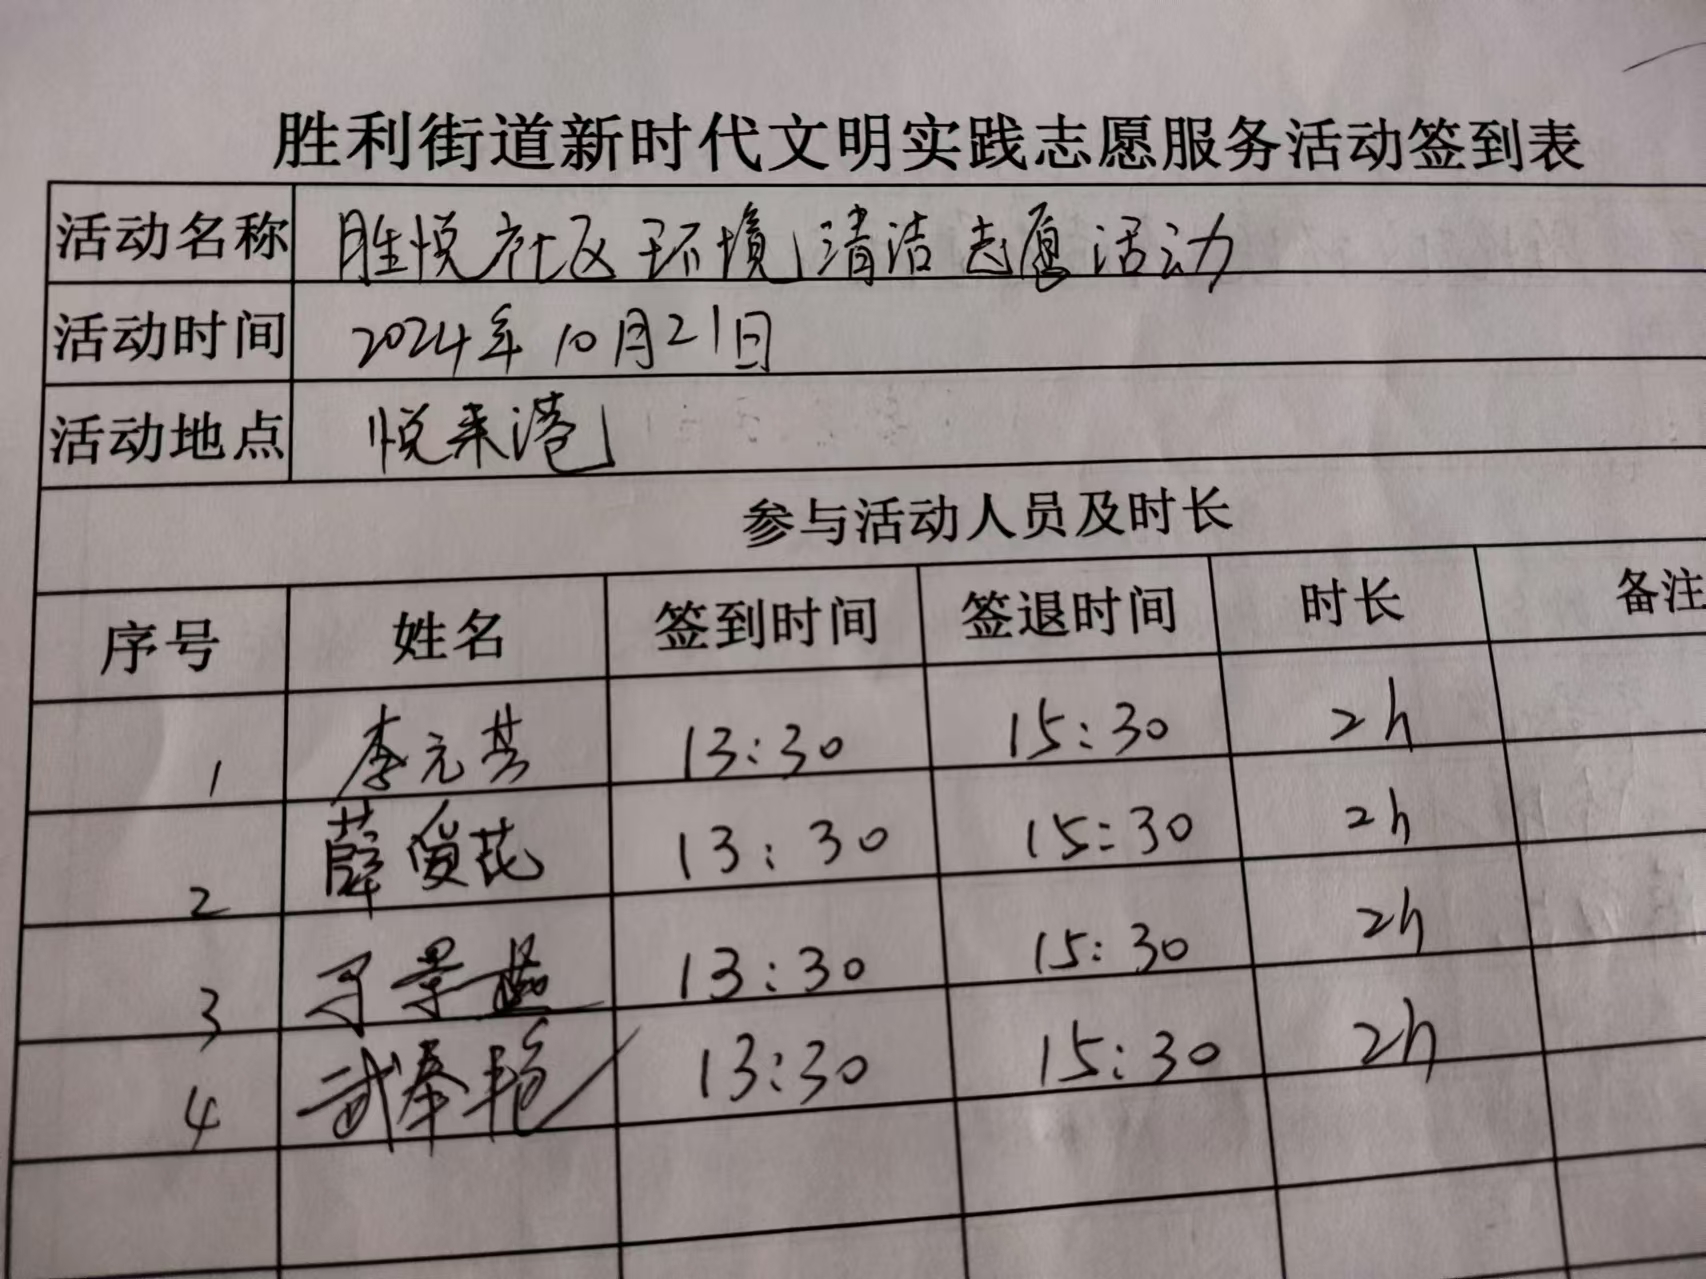 胜利街道新时代文明实践志愿服务活动签到表
活动名称 胜悦社区环境清洁志愿活动
活动时间 2024年10月21日
活动地点 悦来港
参与活动人员及时长
序号 姓名 签到时间 签退时间 时长 备注
1 李元芸 13:30 15:30 2h
2 薛爱花 13:30 15:30 2h
3 13:30 15:30 2h
4 武奉艳 13:30 15:30 2h